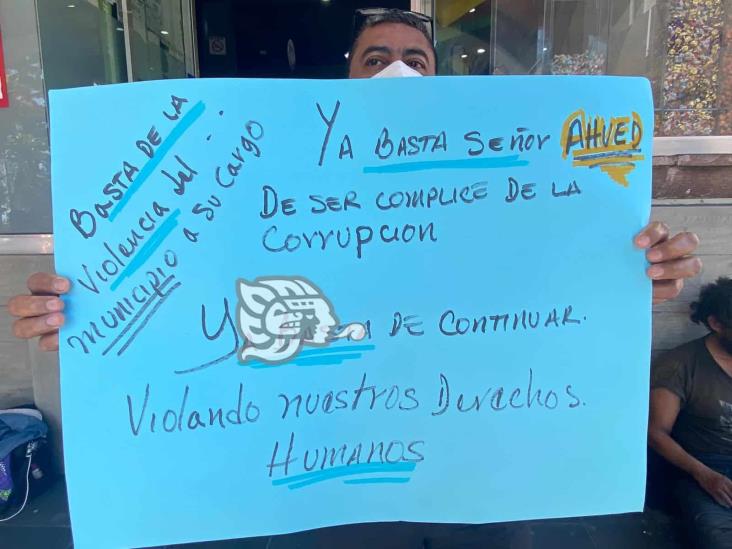 Basta de la
Violencia del
municipio a su cargo
Ya Basta Señor AHUED
De ser complice de la
Corrupcion
Y de continuar.
Violando nuestros Derechos.
Humanos